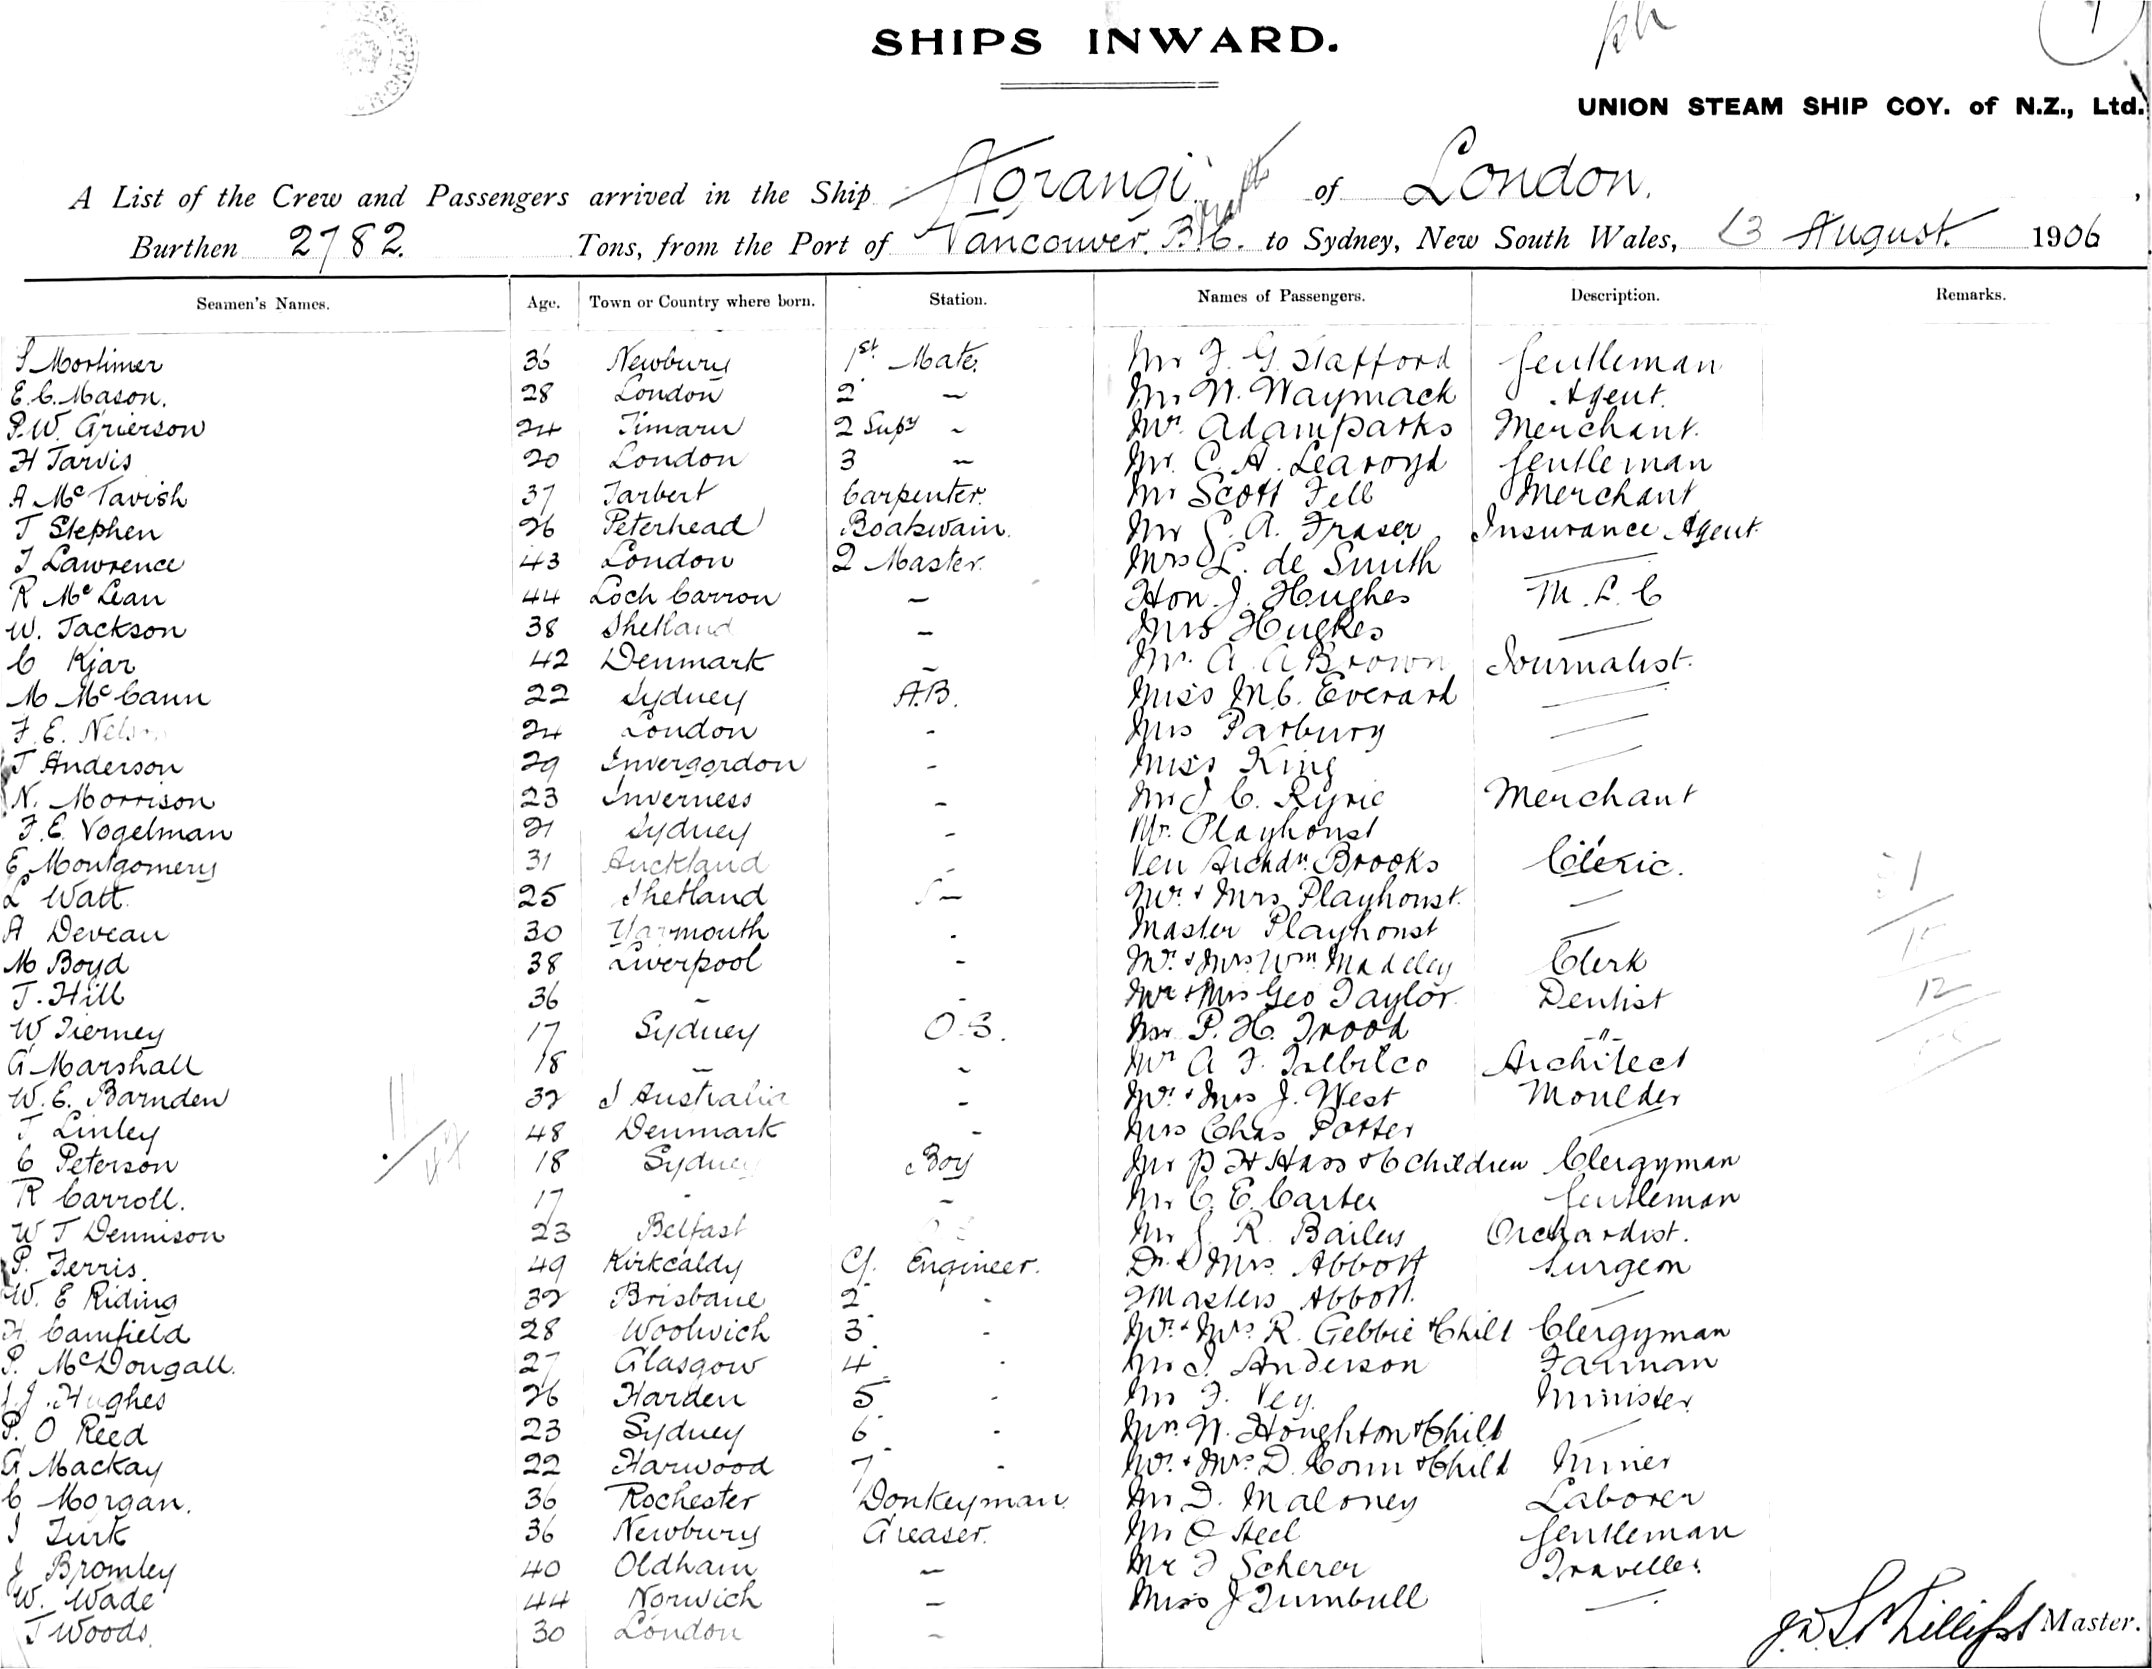 SHIPS INWARD.
UNION STEAM SHIP COY. of N.Z., Ltd.
A List of the Crew and Passengers arrived in the Ship Aorangi of London.
Burthen 2782. Tons, from the Port of Vancouver. B.C. to Sydney, New South Wales, 13 August 1906
Seamen's Names. Age. Town or Country where born. Station. Names of Passengers. Description. Remarks.
S Mortimer 36 Newbury 1st Mate. Mr F. G Stafford Gentleman
E. C. Mason. 28 London 2 ~ Mr. W. Waymack Agent.
P. W. Grierson 24 Timaru 2 Supy ~ Mr. Adam Parks Merchant.
H Jarvis 20 London 3 ~ Mr. C. A. Learoyd Gentleman
A McTavish 37 Tarbert Carpenter. Mr Scott Fell Merchant
J Stephen 26 Peterhead Boatswain. Mr G. A. Fraser Insurance Agent
J Lawrence 43 London Q Master. Mrs L. de Smith —
R McLean 44 Loch Carron ~ Hon. J. Hughes M. L. C
W. Jackson 38 Shetland ~ Mrs Hughes —
C Kjar 42 Denmark ~ Mr. A. A Brown Journalist.
M McCann 22 Sydney A.B. Miss M. C. Everard —
F. E. Nelson 24 London - Mrs Parbury —
J Anderson 29 Invergordon - Miss King —
N. Morrison 23 Inverness ~ Mr J C. Ryrie Merchant
F. E. Vogelman 21 Sydney - Mr. Playhonst
E Montgomery 31 Auckland - Ven Archdn. Brooks Cleric.
L Watt. 25 Shetland ~ Mr. & Mrs Playhonst. —
A Deveau 30 Yarmouth - Master Playhonst —
M Boyd 38 Liverpool - Mr. & Mrs. Wm. Madeley Clerk
J. Hill 36 ~ - Mr & Mrs Geo Taylor. Dentist
W. Tierney 17 Sydney O.S. Mr P. H. Trood -"-
G Marshall 18 ~ ~ Mr A. F. Architect
W. E. Barnden 32 S Australia - Mr. & Mrs J. West Moulder
J Linley 48 Denmark - Mrs Chas Potter —
C Peterson 18 Sydney Boy Mr P H Hass & 6 children Clergyman
R Carroll. 17 - ~ Mr C. E. Carter Gentleman
W T Dennison 23 Belfast Mr J. R. Bailey Orchardist.
P. Ferris. 49 Kirkcaldy Cf. Engineer. Dr. & Mrs. Abbott Surgeon
W. E Riding 32 Brisbane 2 - 2 Masters Abbott. —
H Camfield 28 Woolwich 3 - Mr. & Mrs R. Gebbie & Child Clergyman
P. McDougall. 27 Glasgow 4 - Mr J. Anderson Farman
J. J. Hughes 26 Harden 5 - Mr F. Vey. Minister.
P. O Reed 23 Sydney 6 - Mrs. W. Houghton & Child —
G Mackay 22 Harwood 7 - Mr. & Mrs D. Conn & Child Miner
C Morgan. 36 Rochester Donkeyman. Mr D. Maloney Laborer
J Turk 36 Newbury Greaser. Mr O Steel Gentleman
J Bromley 40 Oldham — Mr F Scherer Traveller.
W. Wade 44 Norwich ~ Miss J Turnbull —
J Woods. 30 London ~
11
12
Phillips Master.